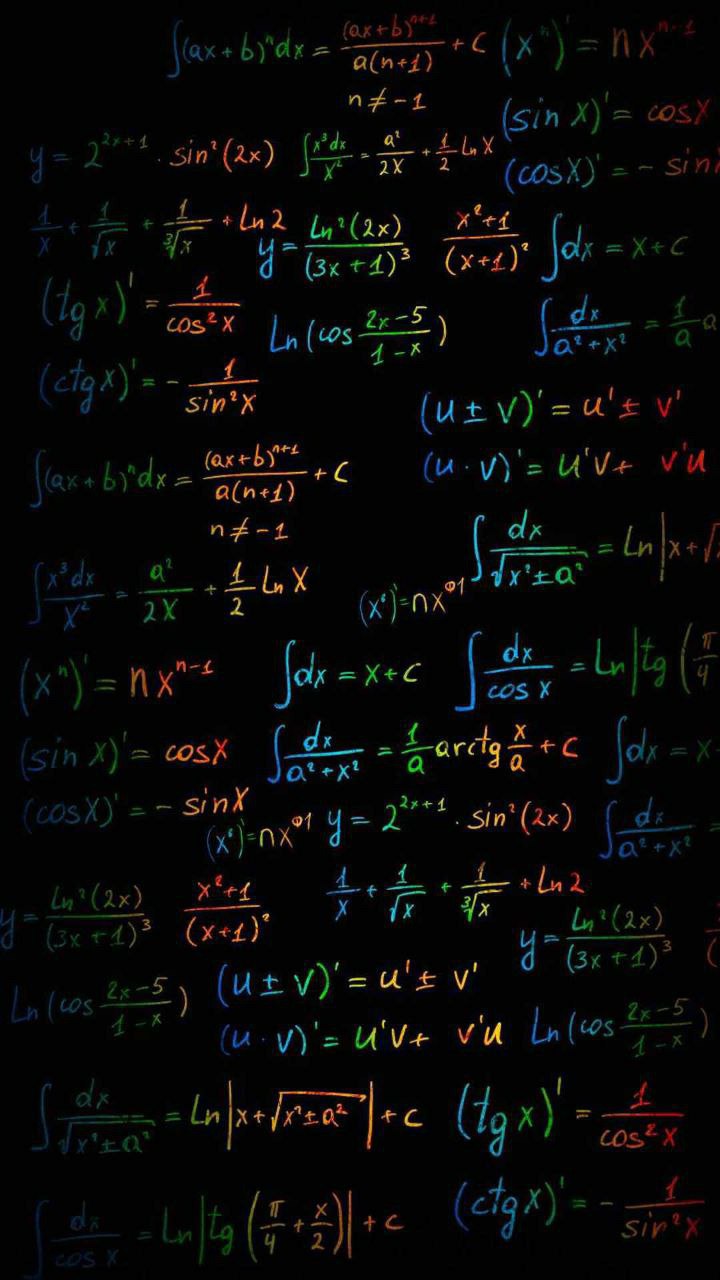 ∫(ax+b)ⁿdx = (ax+b)ⁿ⁺¹/a(n+1) + C
n ≠ -1
(xⁿ)' = nxⁿ⁻¹
(sin x)' = cosx
(cosx)' = - sin
y = 2²ˣ⁺¹ · sin²(2x)
∫x³dx/x² = a²/2x + 1/2 Ln x
1/x + 1/√x + 1/∛x + Ln2
y = Ln²(2x)/(3x+1)³
x²+1/(x+1)²
∫dx = x+c
(tgx)' = 1/cos²x
Ln(cos 2x-5/1-x)
∫dx/a²+x² = 1/a a
(ctgx)' = - 1/sin²x
(u ± v)' = u' ± v'
(u · v)' = u'v + v'u
∫(ax+b)ⁿdx = (ax+b)ⁿ⁺¹/a(n+1) + C
n ≠ -1
∫dx/√x²±a² = Ln|x+√
∫x³dx/x² = a²/2x + 1/2 Ln x
(x⁶)' = nx
(xⁿ)' = nxⁿ⁻¹
∫dx = x+c
∫dx/cos x = Ln|tg(π/4
(sin x)' = cosx
∫dx/a²+x² = 1/a arctg x/a + c
∫dx = x
(cosx)' = - sinx
(x⁶)' = nx
y = 2²ˣ⁺¹ · sin²(2x)
∫dx/a²+x² =
y = Ln²(2x)/(3x+1)³
x²+1/(x+1)²
1/x + 1/√x + 1/∛x + Ln2
y = Ln²(2x)/(3x+1)³
Ln(cos 2x-5/1-x)
(u ± v)' = u' ± v'
(u · v)' = u'v + v'u
Ln(cos 2x-5/1-x)
∫dx/√x²±a² = Ln|x+√x²±a²| + c
(tgx)' = 1/cos²x
∫dx/cos x = Ln|tg(π/4 + x/2)| + c
(ctgx)' = - 1/sin²x